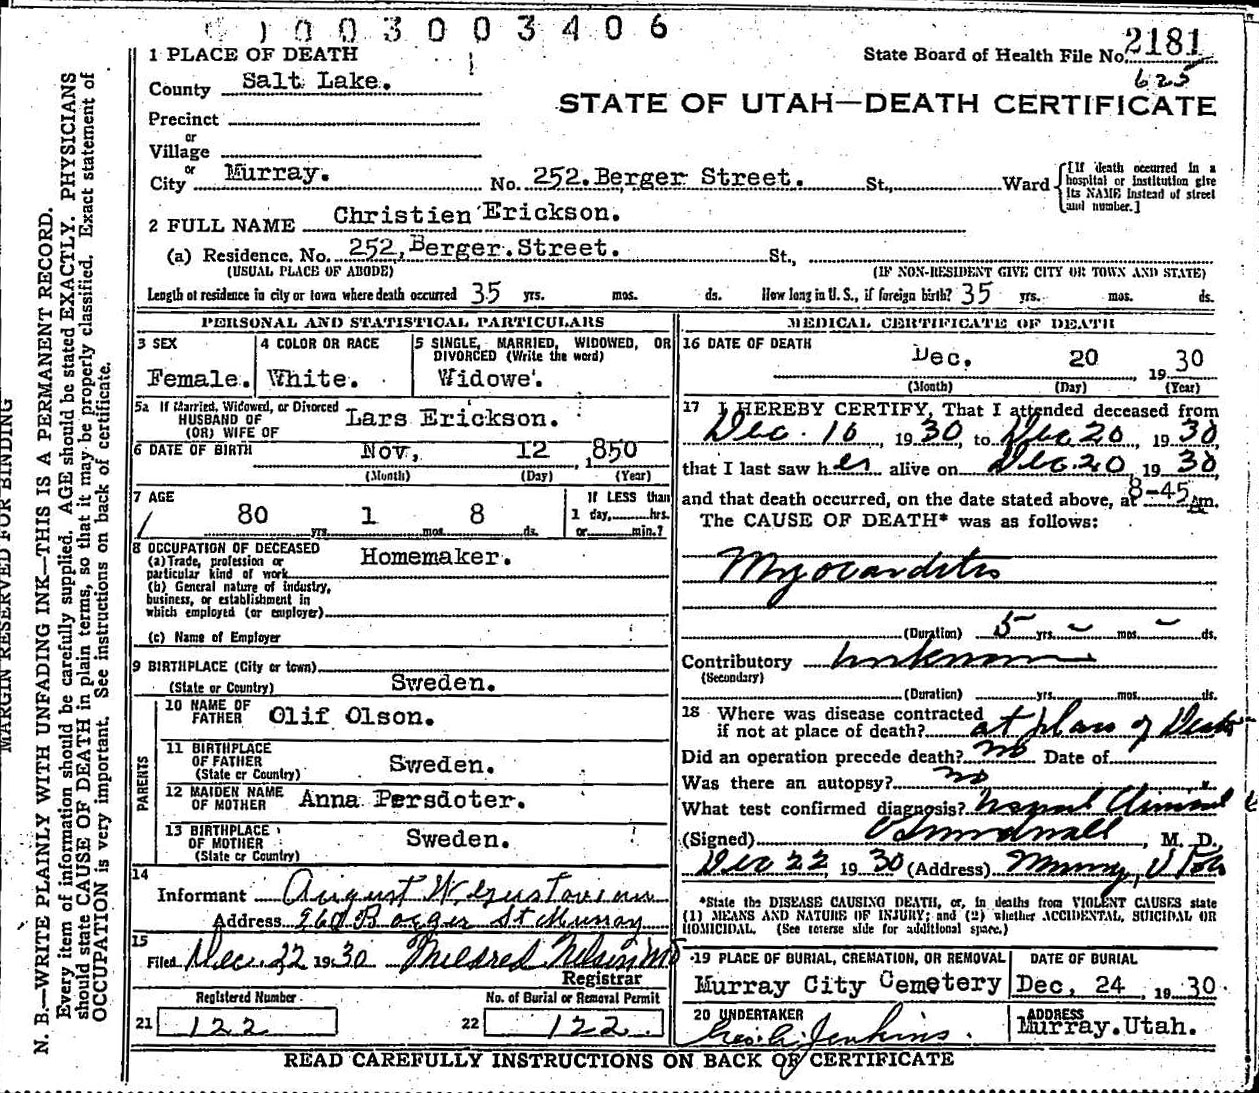 003003406
1 PLACE OF DEATH
State Board of Health File No. 2181
625
County Salt Lake.
STATE OF UTAH—DEATH CERTIFICATE
Precinct
or
Village
or
City Murray. No. 252. Berger Street. St., Ward
[If death occurred in a hospital or institution give its NAME instead of street and number.]
2 FULL NAME Christien Erickson.
(a) Residence. No. 252, Berger. Street. St.,
(USUAL PLACE OF ABODE) (IF NON-RESIDENT GIVE CITY OR TOWN AND STATE)
Length of residence in city or town where death occurred 35 yrs. mos. ds. How long in U. S., if foreign birth? 35 yrs. mos. ds.
PERSONAL AND STATISTICAL PARTICULARS
3 SEX
Female.
4 COLOR OR RACE
White.
5 SINGLE, MARRIED, WIDOWED, OR DIVORCED (Write the word)
Widowe'.
5a If Married, Widowed, or Divorced
HUSBAND OF
(OR) WIFE OF
Lars Erickson.
6 DATE OF BIRTH Nov, 12, 1850
(Month) (Day) (Year)
7 AGE
80 yrs. 1 mos. 8 ds.
If LESS than
1 day,......hrs.
or......min.?
8 OCCUPATION OF DECEASED
(a) Trade, profession or
particular kind of work Homemaker.
(b) General nature of industry,
business, or establishment in
which employed (or employer)
(c) Name of Employer
9 BIRTHPLACE (City or town)
(State or Country) Sweden.
PARENTS
10 NAME OF
FATHER Olif Olson.
11 BIRTHPLACE
OF FATHER
(State or Country) Sweden.
12 MAIDEN NAME
OF MOTHER Anna Persdoter.
13 BIRTHPLACE
OF MOTHER
(State or Country) Sweden.
14
Informant August W
Address St Murray
15
Filed Dec. 22 1930 Mildred Nelson
Registrar
Registered Number
21 122
No. of Burial or Removal Permit
22 122.
MEDICAL CERTIFICATE OF DEATH
16 DATE OF DEATH
Dec. 20, 1930
(Month) (Day) (Year)
17 I HEREBY CERTIFY, That I attended deceased from
Dec. 16, 1930, to Dec 20, 1930,
that I last saw her alive on Dec. 20, 1930
and that death occurred, on the date stated above, at 8-45 am.
The CAUSE OF DEATH* was as follows:
Myocarditis
(Duration) 5 yrs. – mos. – ds.
Contributory unknown
(Secondary)
(Duration) yrs. mos. ds.
18 Where was disease contracted
if not at place of death? at place of Death
Did an operation precede death? no Date of
Was there an autopsy? no
What test confirmed diagnosis? usual Clinical
(Signed) , M. D.
Dec 22 1930 (Address) Murray, Utah
*State the DISEASE CAUSING DEATH, or, in deaths from VIOLENT CAUSES state
(1) MEANS AND NATURE OF INJURY; and (2) whether ACCIDENTAL, SUICIDAL OR
HOMICIDAL. (See reverse side for additional space.)
19 PLACE OF BURIAL, CREMATION, OR REMOVAL
Murray City Cemetery
DATE OF BURIAL
Dec, 24, 1930.
20 UNDERTAKER
Jenkins.
ADDRESS
Murray. Utah.
READ CAREFULLY INSTRUCTIONS ON BACK OF CERTIFICATE
MARGIN RESERVED FOR BINDING
N. B.—WRITE PLAINLY WITH UNFADING INK—THIS IS A PERMANENT RECORD.
Every item of information should be carefully supplied. AGE should be stated EXACTLY. PHYSICIANS
should state CAUSE OF DEATH in plain terms, so that it may be properly classified. Exact statement of
OCCUPATION is very important. See instructions on back of certificate.